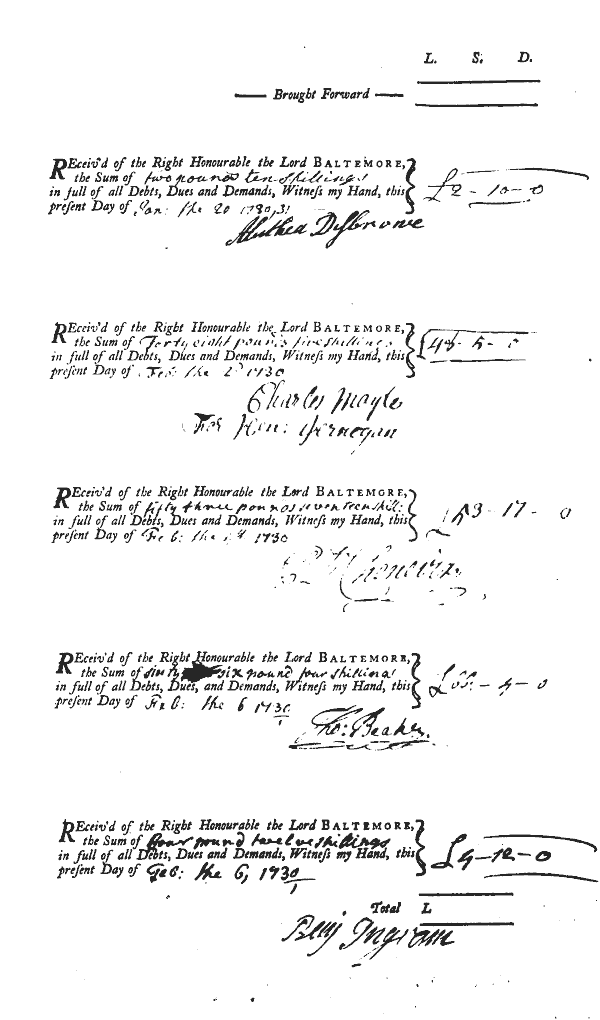 L. S. D.
Brought Forward
REceiv'd of the Right Honourable the Lord BALTEMORE,
the Sum of two pounds ten shillings
in full of all Debts, Dues and Demands, Witneſs my Hand, this
preſent Day of Jan: the 20 1730/31
£2-10-0
Althea Desbrowe
REceiv'd of the Right Honourable the Lord BALTEMORE,
the Sum of Forty eight pounds five shillings
in full of all Debts, Dues and Demands, Witneſs my Hand, this
preſent Day of Feb: the 2d 1730
£48-5-0
Charles Moyle
For Hen: Jernegan
REceiv'd of the Right Honourable the Lord BALTEMORE,
the Sum of fifty three pounds seventeen shill:
in full of all Debts, Dues and Demands, Witneſs my Hand, this
preſent Day of Feb: the 1730
£53-17-0
Chenevix
REceiv'd of the Right Honourable the Lord BALTEMORE,
the Sum of sixty six pound four shillins
in full of all Debts, Dues, and Demands, Witneſs my Hand, this
preſent Day of Feb: the 6 1730/1
£66-4-0
Tho: Beaker.
REceiv'd of the Right Honourable the Lord BALTEMORE,
the Sum of four pound twelve shillings
in full of all Debts, Dues and Demands, Witneſs my Hand, this
preſent Day of Feb: the 6, 1730/1
£4-12-0
Total L
Benj Ingram